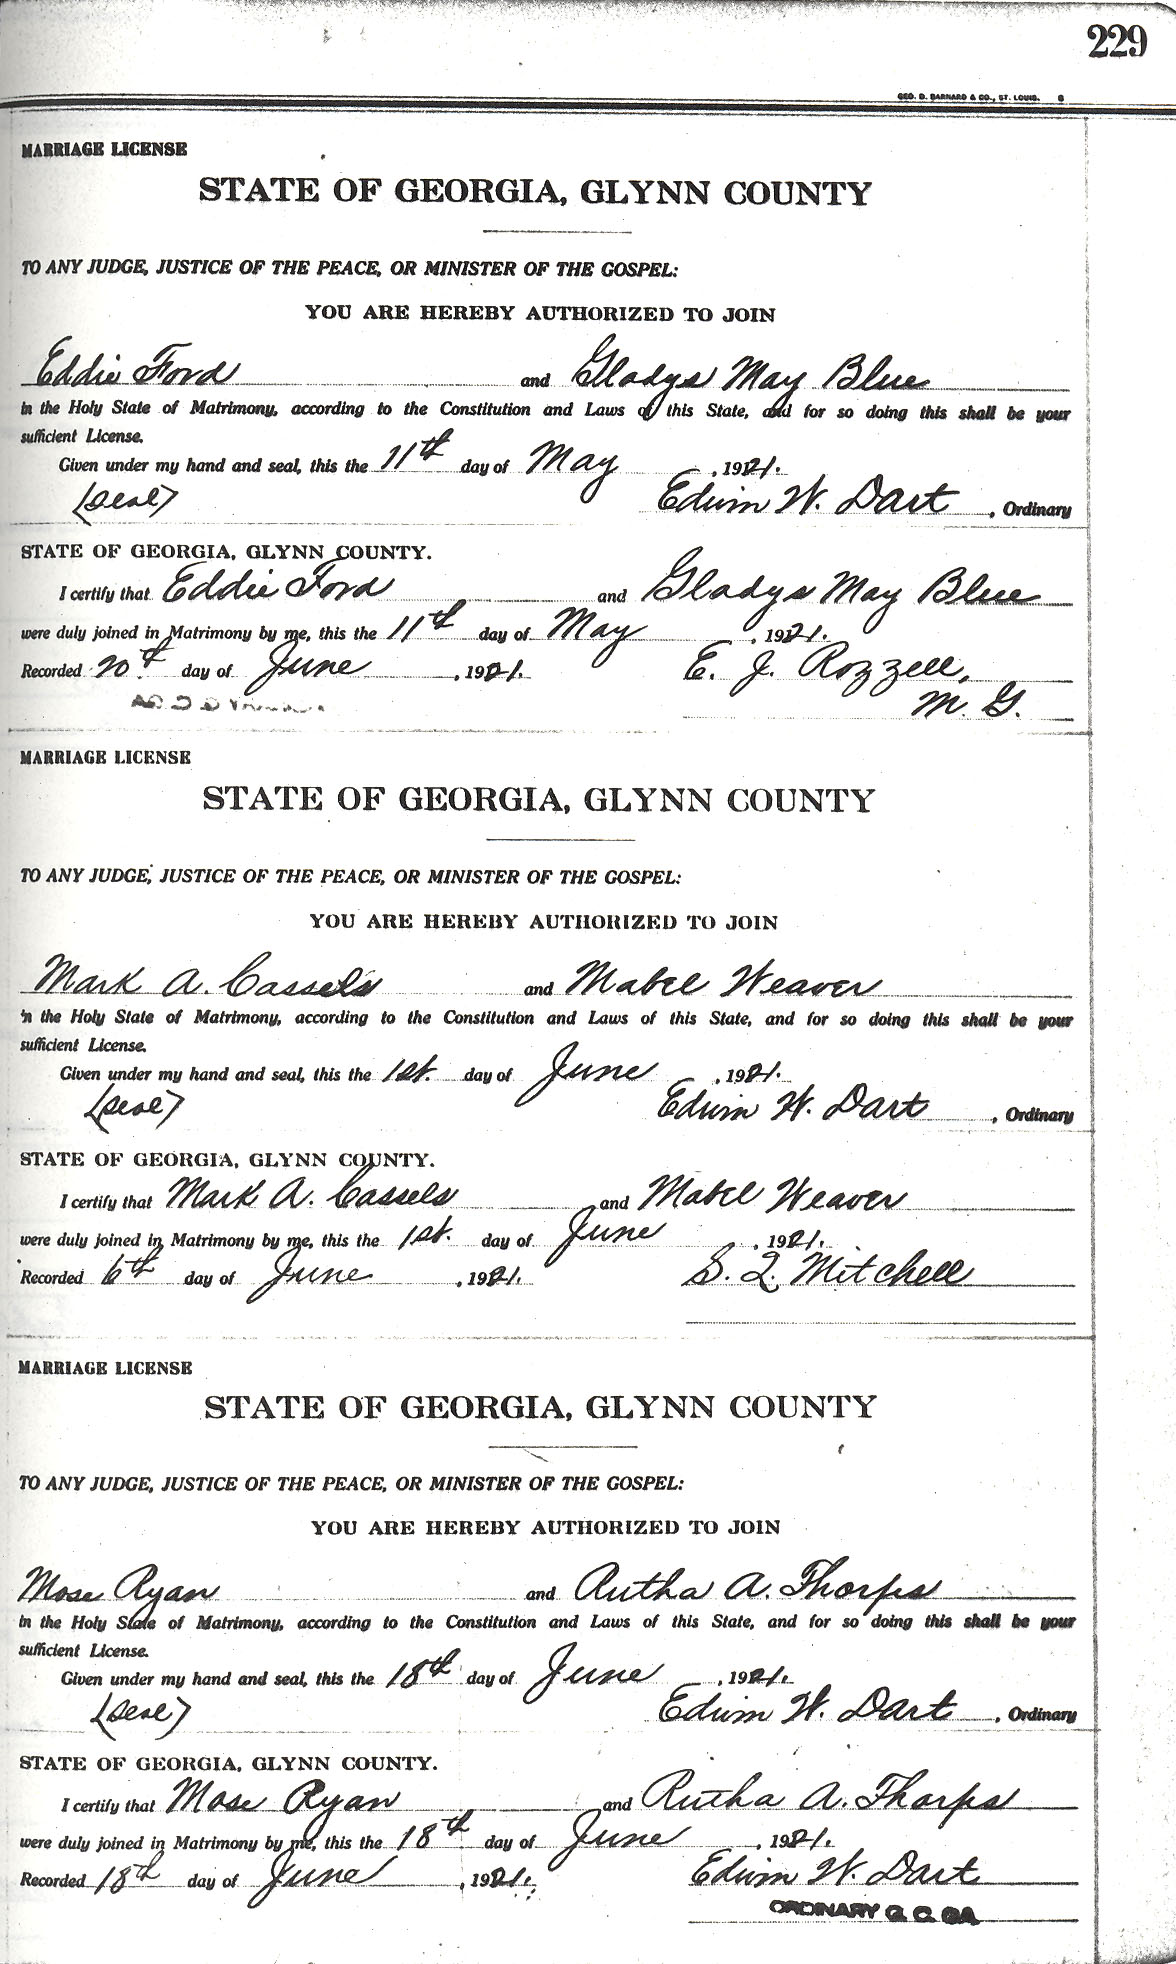 229
GEO. D. BARNARD & CO., ST. LOUIS.
MARRIAGE LICENSE
STATE OF GEORGIA, GLYNN COUNTY
TO ANY JUDGE, JUSTICE OF THE PEACE, OR MINISTER OF THE GOSPEL:
YOU ARE HEREBY AUTHORIZED TO JOIN
Eddie Ford and Gladys May Blue
in the Holy State of Matrimony, according to the Constitution and Laws of this State, and for so doing this shall be your
sufficient License.
Given under my hand and seal, this the 11th day of May, 1921.
(seal) Edwin W. Dart, Ordinary
STATE OF GEORGIA, GLYNN COUNTY.
I certify that Eddie Ford and Gladys May Blue
were duly joined in Matrimony by me, this the 11th day of May, 1921.
Recorded 20th day of June, 1921. E. J. Rozzell,
M. G.
MARRIAGE LICENSE
STATE OF GEORGIA, GLYNN COUNTY
TO ANY JUDGE, JUSTICE OF THE PEACE, OR MINISTER OF THE GOSPEL:
YOU ARE HEREBY AUTHORIZED TO JOIN
Mark A. Cassels and Mabel Weaver
in the Holy State of Matrimony, according to the Constitution and Laws of this State, and for so doing this shall be your
sufficient License.
Given under my hand and seal, this the 1st. day of June, 1921.
(seal) Edwin W. Dart, Ordinary
STATE OF GEORGIA, GLYNN COUNTY.
I certify that Mark A. Cassels and Mabel Weaver
were duly joined in Matrimony by me, this the 1st. day of June, 1921.
Recorded 6th day of June, 1921. S. Q. Mitchell
MARRIAGE LICENSE
STATE OF GEORGIA, GLYNN COUNTY
TO ANY JUDGE, JUSTICE OF THE PEACE, OR MINISTER OF THE GOSPEL:
YOU ARE HEREBY AUTHORIZED TO JOIN
Mose Ryan and Rutha A. Thorps
in the Holy State of Matrimony, according to the Constitution and Laws of this State, and for so doing this shall be your
sufficient License.
Given under my hand and seal, this the 18th day of June, 1921.
(seal) Edwin W. Dart, Ordinary
STATE OF GEORGIA, GLYNN COUNTY.
I certify that Mose Ryan and Rutha A. Thorps
were duly joined in Matrimony by me, this the 18th day of June, 1921.
Recorded 18th day of June, 1921. Edwin W. Dart
ORDINARY G. C. GA.